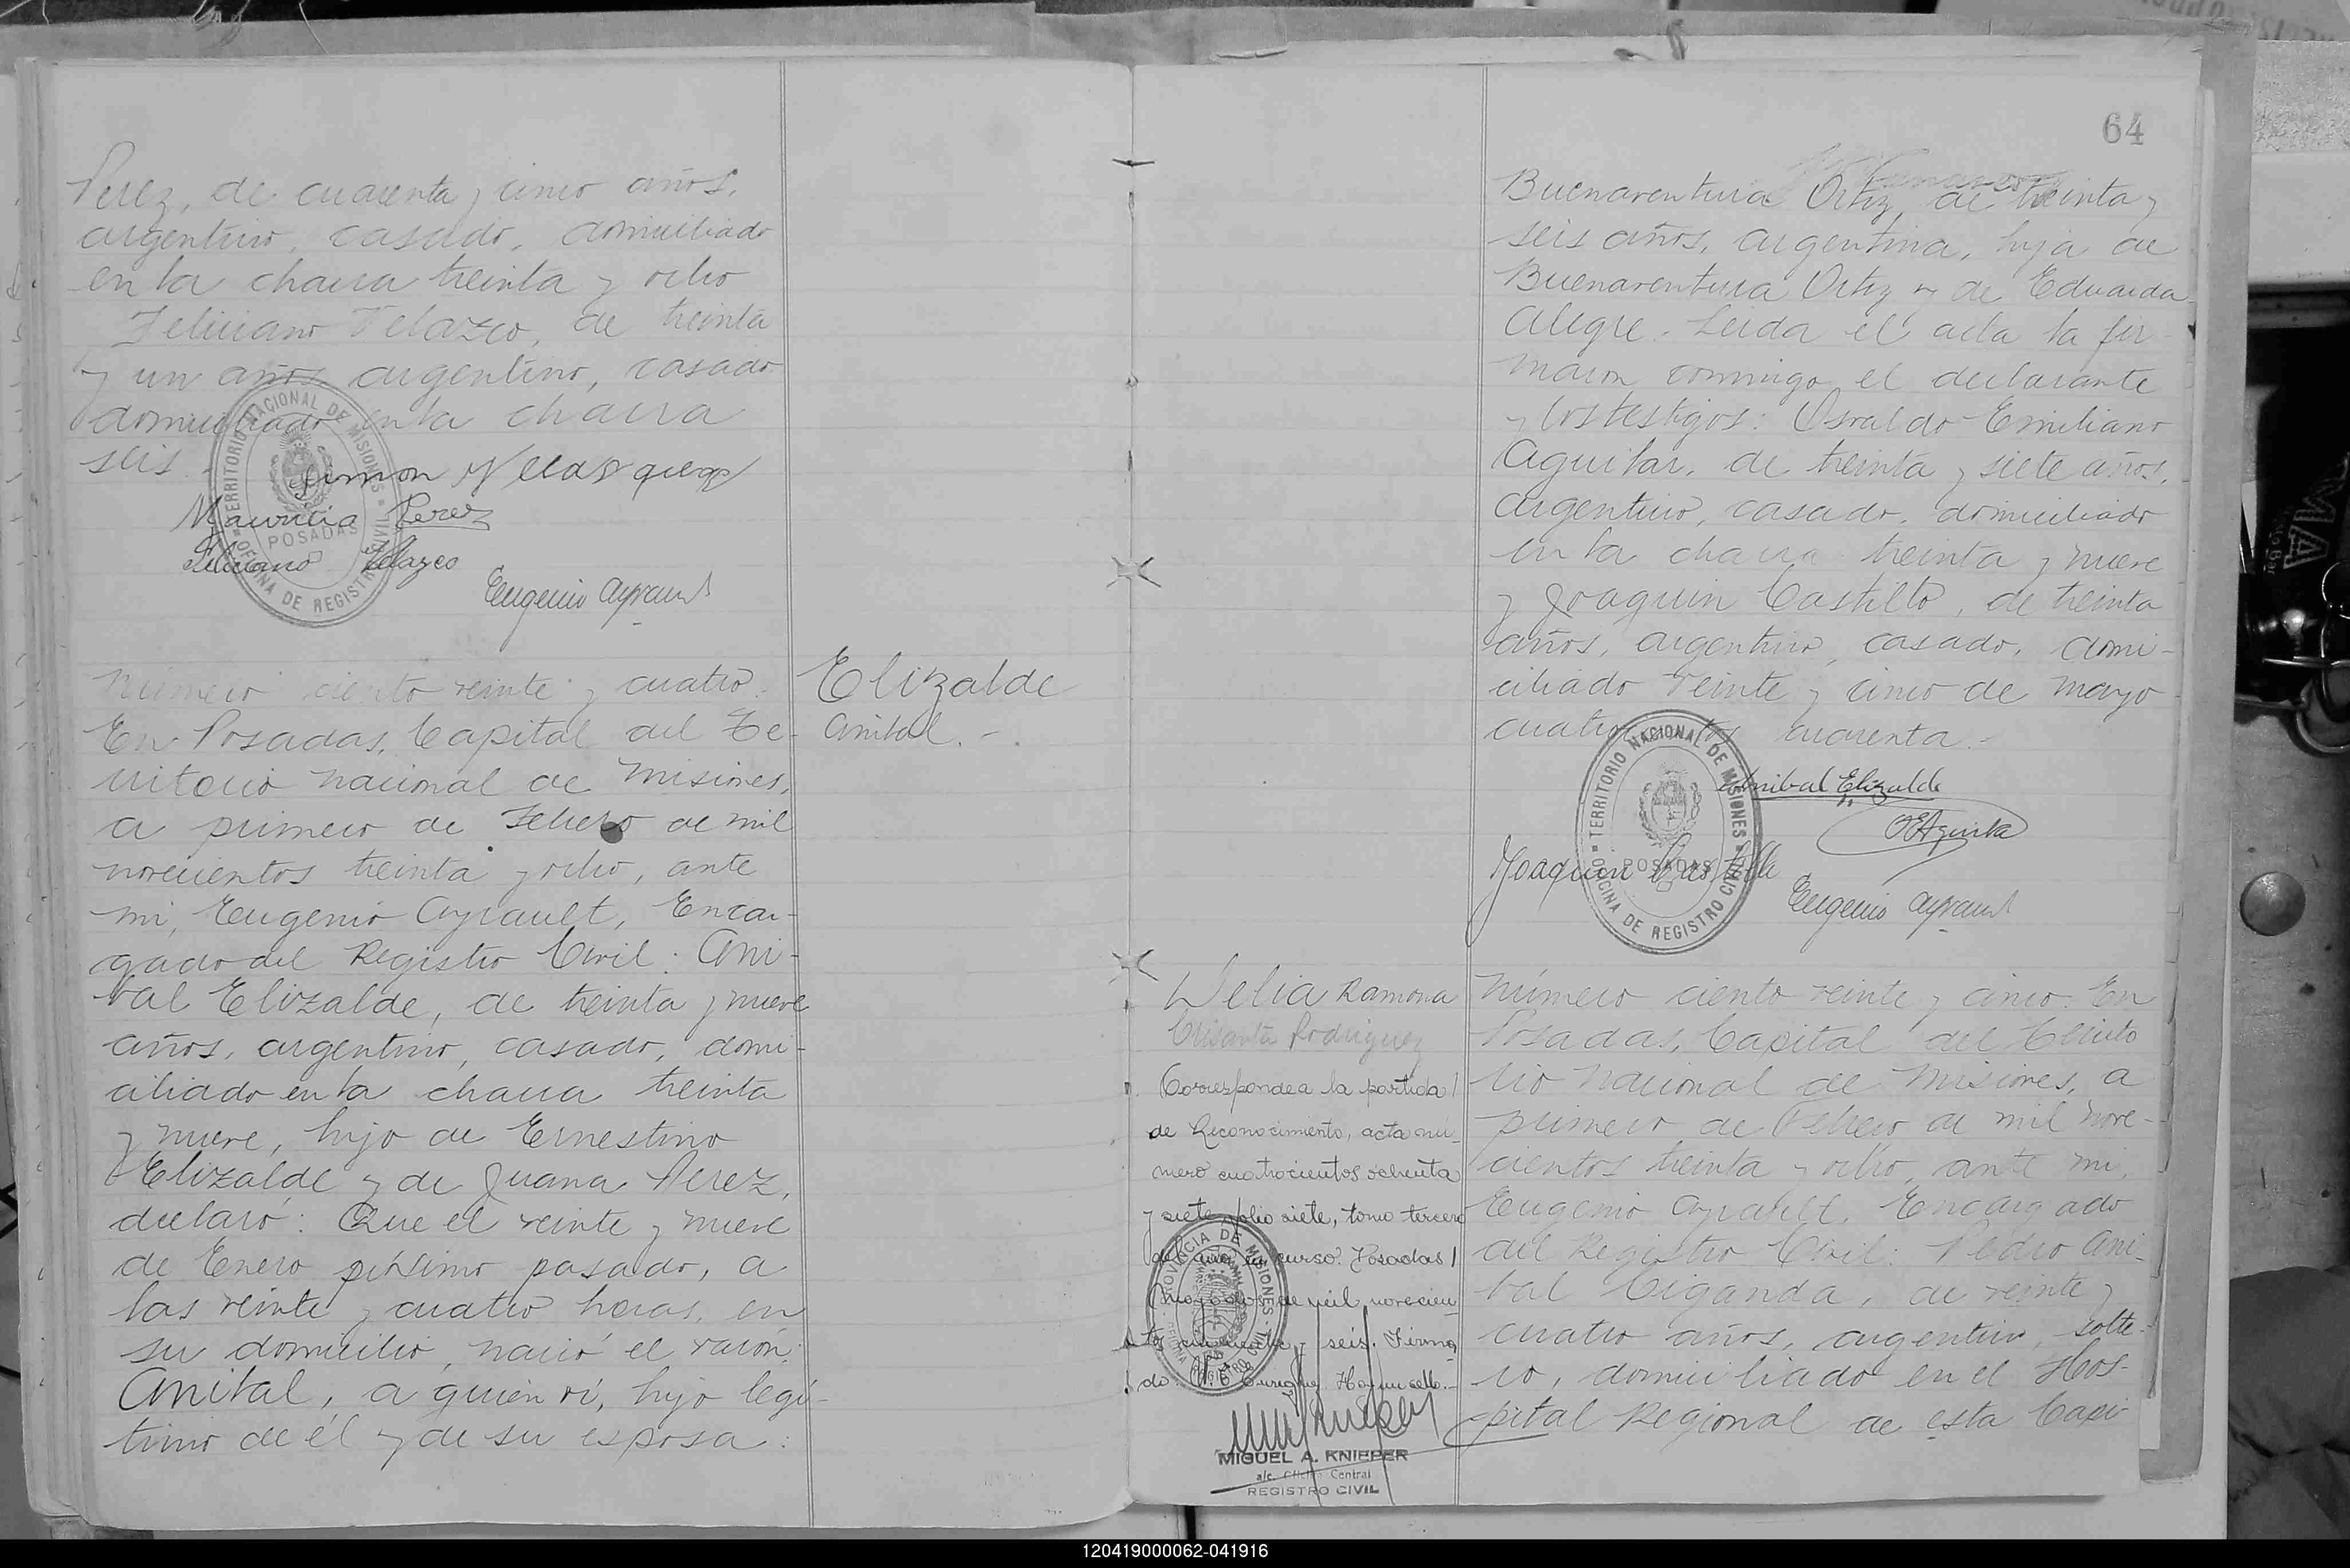 Perez, de cuarenta y cinco años,
argentino, casado, domiciliado
en la chacra treinta y ocho
Feliciano Velazco, de treinta
y un años argentino, casado
domiciliado en la chacra
seis.
Simon Velasquez
Mauricia Perez
Feliciano Velazco
Eugenio Ayrault
TERRITORIO NACIONAL DE MISIONES
POSADAS
OFICINA DE REGISTRO CIVIL
Número ciento veinte y cuatro.
En Posadas, Capital del Te-
rritorio Nacional de Misiones,
a primero de Febrero de mil
novecientos treinta y ocho, ante
mi, Eugenio Ayrault, Encar-
gado del Registro Civil: Ani-
bal Elizalde, de treinta y nueve
años, argentino, casado, domi-
ciliado en la chacra treinta
y nueve, hijo de Ernestino
Elizalde y de Juana Perez,
declaró: Que el veinte y nueve
de Enero próximo pasado, a
las veinte y cuatro horas, en
su domicilio, nació el varón:
Anibal, a quien ví, hijo legi-
timo de él y de su esposa:
Elizalde
Anibal.-
64
Buenaventura Ortiz, de treinta y
seis años, argentina, hija de
Buenaventura Ortiz y de Eduarda
Alegre. Leida el acta la fir-
maron conmigo el declarante
y los testigos: Osvaldo Emiliano
Aguilar, de treinta y siete años,
argentino, casado, domiciliado
en la chacra treinta y nueve
y Joaquin Castillo, de treinta
años, argentino, casado, domi-
ciliado Veinte y cinco de Mayo
cuatrocientos cuarenta.-
Anibal Elizalde
OEAguilar
Joaquin Castillo
Eugenio Ayrault
TERRITORIO NACIONAL DE MISIONES
POSADAS
OFICINA DE REGISTRO CIVIL
Delia Ramona
Crisanta Rodriguez
Corresponde a la partida
de Reconocimiento, acta nú-
mero cuatrocientos ochenta
y siete, folio siete, tomo tercero
del año en curso. Posadas
de mil novecien-
tos cincuenta y seis. Firma-
do
PROVINCIA DE MISIONES
MIGUEL A. KNIEPER
a/c. Oficina Central
REGISTRO CIVIL
Número ciento veinte y cinco. En
Posadas, Capital del Territo
rio Nacional de Misiones, a
primero de Febrero de mil nove-
cientos treinta y ocho, ante mi,
Eugenio Ayrault, Encargado
del Registro Civil: Pedro Ani-
bal Ciganda, de veinte y
cuatro años, argentino, solte-
ro, domiciliado en el Hos-
pital Regional de esta Capi-
120419000062-041916